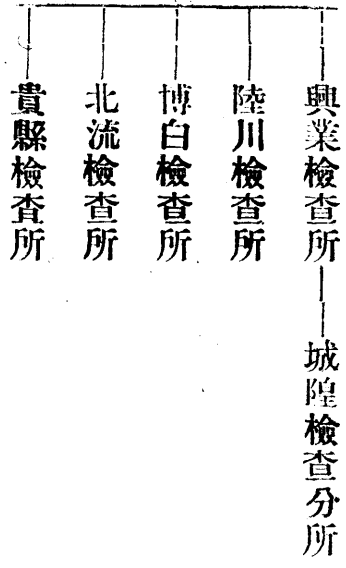 興業檢查所——城隍檢查分所
陸川檢查所
博白檢查所
北流檢查所
貴縣檢查所